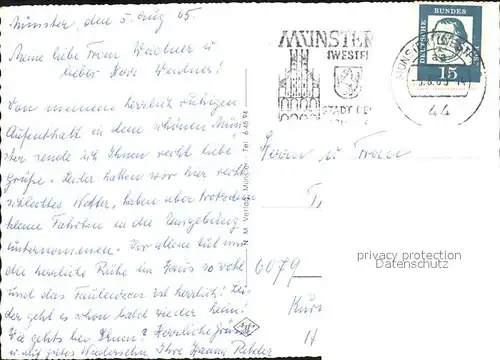 Münster, den 5. Aug 65.
Meine liebe Frau Weidner u
lieber Herr Weidner!
Von meinem herrlich ruhigen
Aufenthalt in dem schönen Mün-
ster sende ich Ihnen recht liebe
Grüße. Leider hatten wir hier recht
schlechtes Wetter, haben aber trotzdem
kleine Fahrten in die Umgebung
unternommen. Vor allem tut mir
die herrliche Ruhe im Haus so wohl
und das Faulenzen ist herrlich! Lei-
der geht es schon bald wieder heim!
Wie gehts bei Ihnen? Herzliche Grüsse
u auf gutes Wiedersehn Ihre Hanny
N M Verlag, Münster - Tel. 6 46 94
MÜNSTER
(WESTF)
STADT
DEUTSCHE BUNDES
15
44
Herrn u Frau
6079
privacy protection
Datenschutz